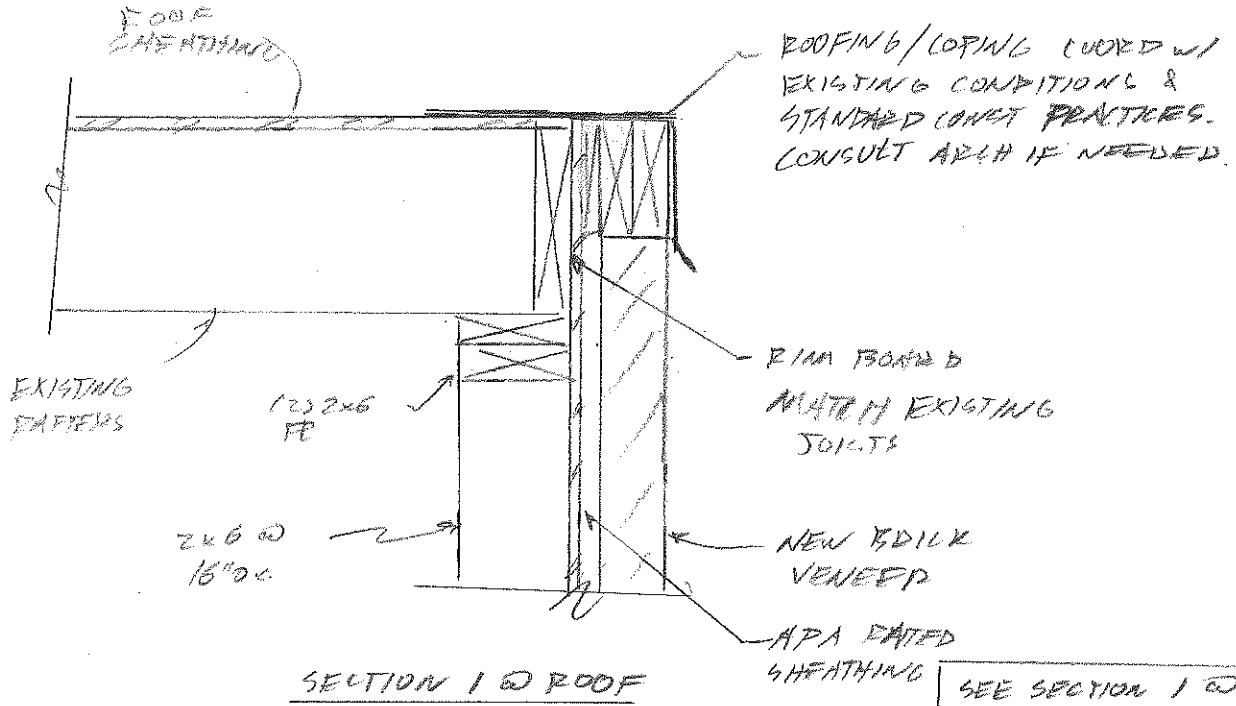 ROOF
SHEATHING
ROOFING/COPING COORD W/
EXISTING CONDITIONS &
STANDARD CONST PRACTICES.
CONSULT ARCH IF NEEDED.
EXISTING
RAFTERS
(2) 2x6
RIM BOARD
MATCH EXISTING
JOISTS
2x6 @
16" O.C.
NEW BRICK
VENEER
APA RATED
SHEATHING
SECTION 1 @ ROOF
SEE SECTION 1 @